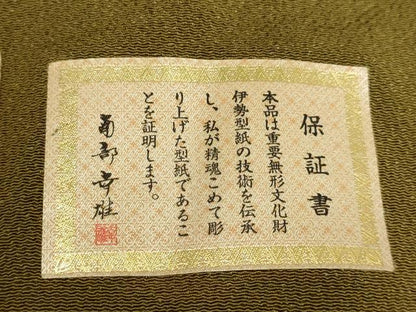 保証書
本品は重要無形文化財
伊勢型紙の技術を伝承
し、私が精魂こめて彫
り上げた型紙であるこ
とを証明します。
南部幸雄